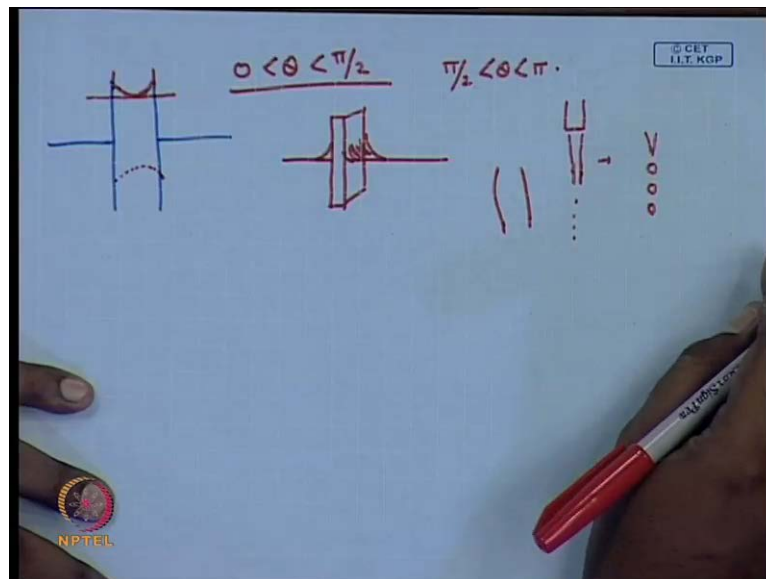 0 < θ < π/2
π/2 < θ < π.
© CET
I.I.T. KGP
NPTEL